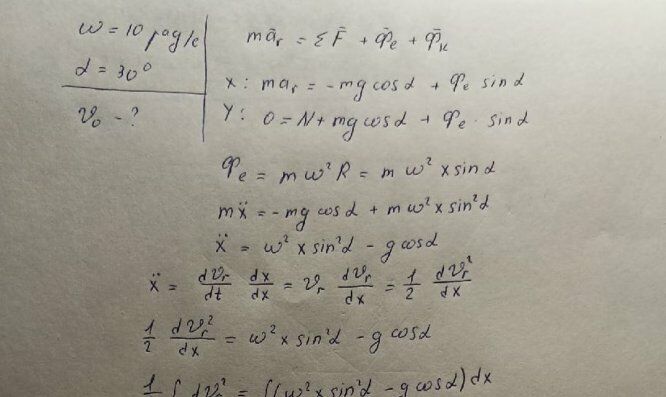 ω = 10 рад/с
α = 30°
v₀ - ?
mā_r = Σ F̄ + Φ̄_e + Φ̄_k
X: ma_r = -mg cos α + Φ_e sin α
Y: 0 = N + mg cos α + Φ_e · sin α
Φ_e = m ω² R = m ω² x sin α
mẍ = -mg cos α + m ω² x sin² α
ẍ = ω² x sin² α - g cos α
ẍ = dv_r/dt dx/dx = v_r dv_r/dx = 1/2 dv_r²/dx
1/2 dv_r²/dx = ω² x sin² α - g cos α
1/2 ∫ dv_r² = ∫(ω² x sin² α - g cos α) dx